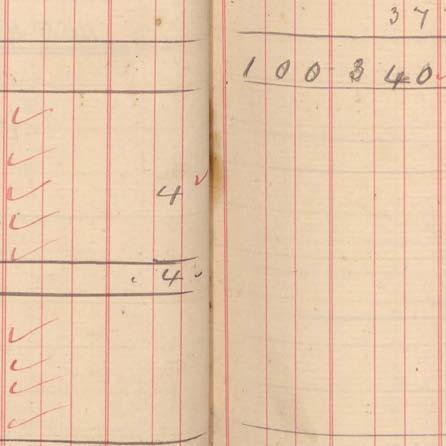 37
100340
4
4